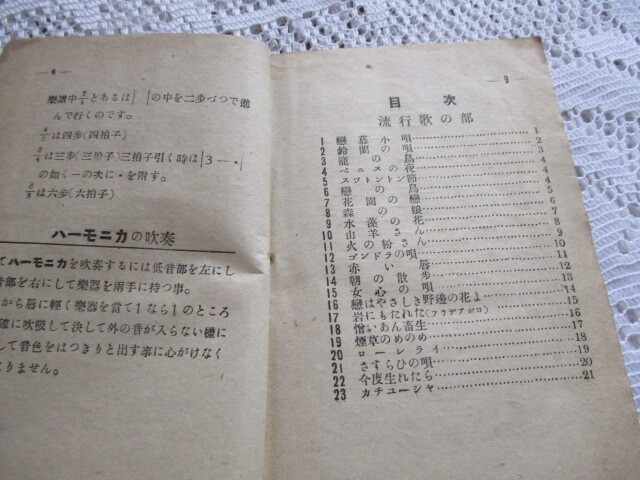 — 8 —
樂譜中2/4とあるは| |の中を二歩づつで進
んで行くのです。
4/4は四歩(四拍子)
3/4は三歩(三拍子)三拍子引く時は|3—・|
の如く—の次に・を附す。
6/8は六歩(六拍子)
ハーモニカの吹奏
てハーモニカを吹奏するには低音部を左にし
音部を右にして樂器を兩手に持つ事。
から唇に輕く樂器を當て1なら1のところ
確に吹吸して決して外の音が入らない樣に
して音色をはつきりと出す事に心がけなく
りません。
— 9 —
目次
流行歌の部
1 戀慕小唄 1
2 鈴蘭の唄 2
3 籠の鳥 3
4 ベニスの夜 4
5 ストトン節 4
6 戀の鳥 5
7 花園の戀 5
8 森の娘 6
9 水藻の花 7
10 山羊さん 8
11 9
12 ゴンドラの唄 10
13 赤い唇 11
14 朝の散步 12
15 女心の唄 13
16 戀はやさしき野邊の花よ 14
17 岩にもたれた(フラデアボロ) 15
18 憎いあん畜生 16
19 煙草のめのめ 17
20 ローレライ 18
21 さすらひの唄 19
22 今度生れたら 20
23 カチユーシヤ 21